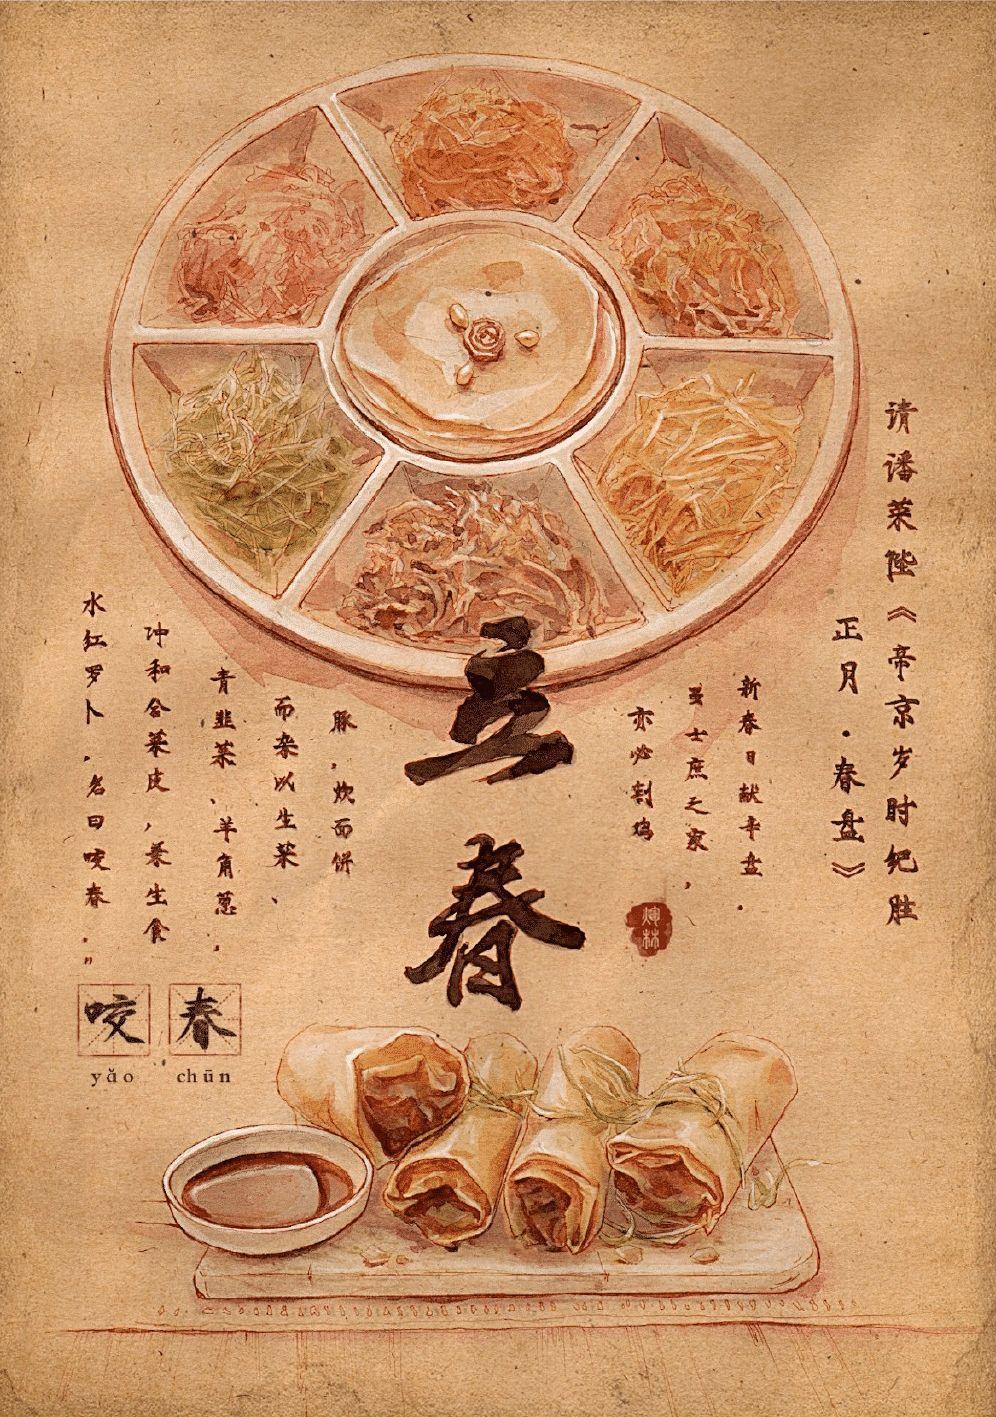 请潘莱陛《帝京岁时纪胜
正月·春盘》
新春日献辛盘。
虽士庶之家，
亦必割鸡
立春
豚，炊面饼
而杂以生菜、
青韭菜、羊角葱，
冲和合菜皮，兼生食
水红罗卜，名曰咬春。”
咬春
yǎo chūn